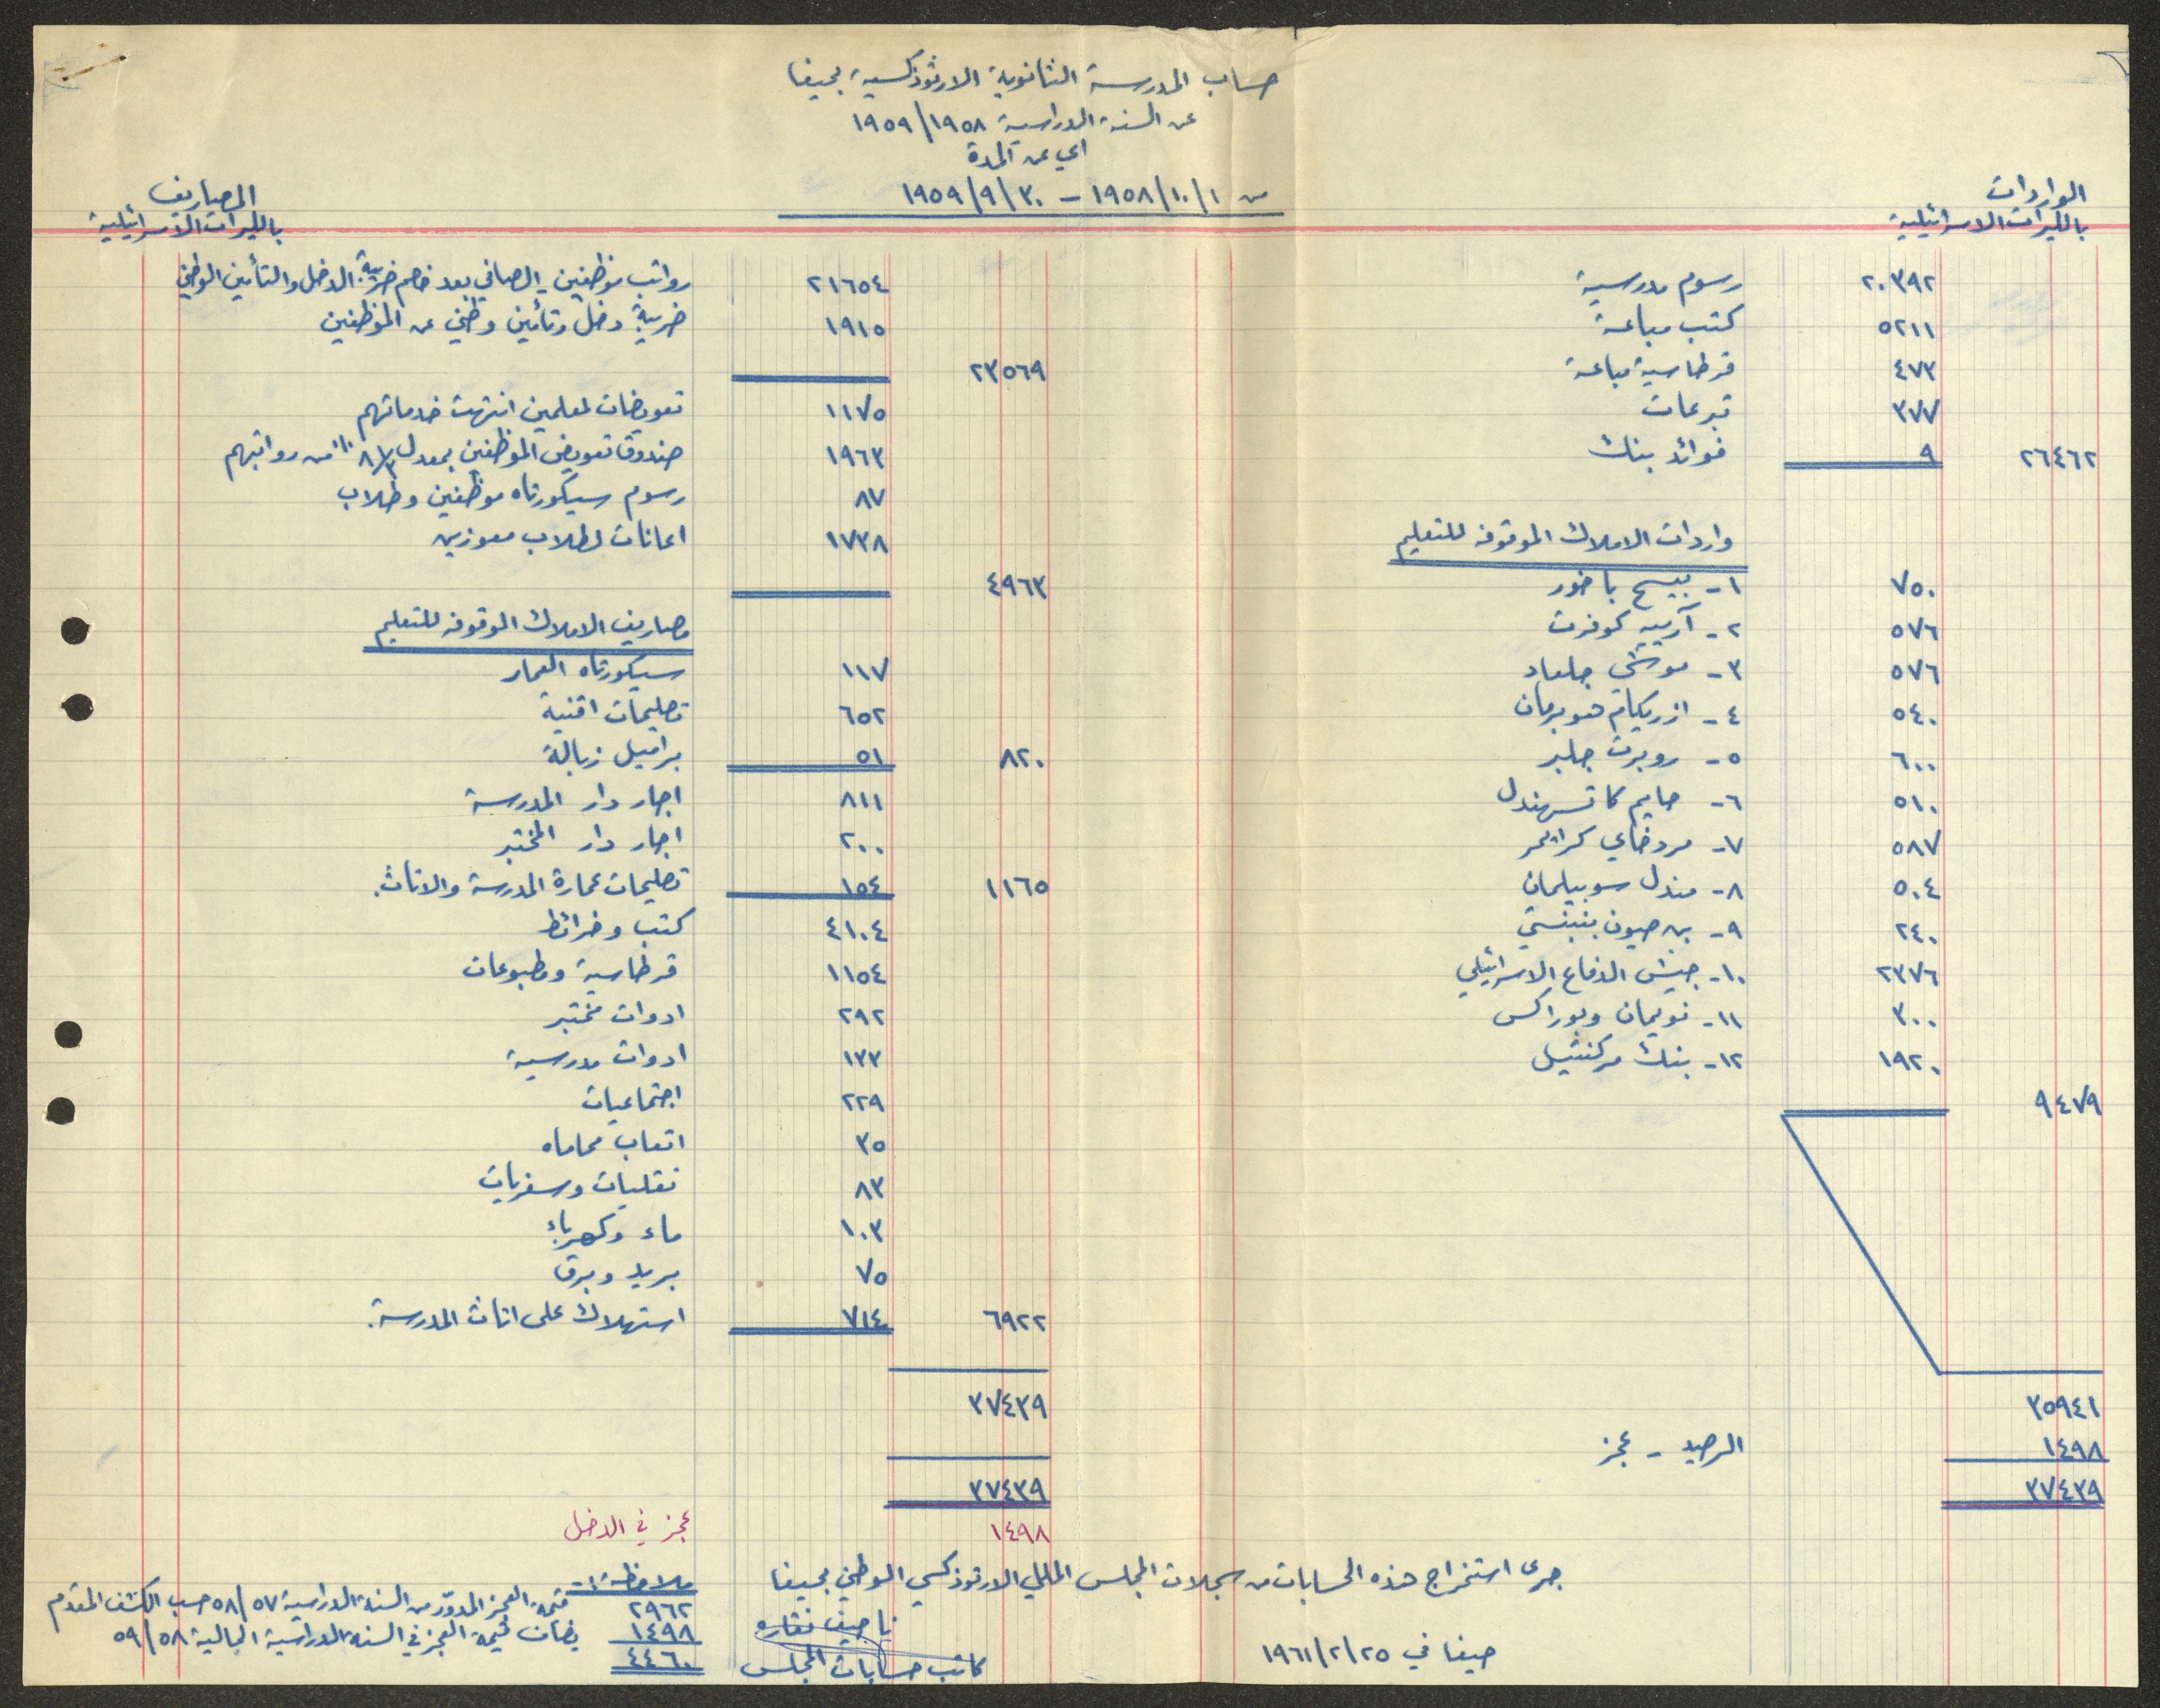 حساب المدرسة الثانوية الارثوذكسية بحيفا
عن السنة الدراسية ١٩٥٨/١٩٥٩
اي عن المدة
من ١٩٥٨/١٠/١ - ١٩٥٩/٩/٣٠
الواردات
بالليرات الاسرائيلية
رسوم مدرسية ٢٠٣٩٢
كتب مباعة ٥٢١١
قرطاسية مباعة ٤٧٣
تبرعات ٣٧٧
فوائد بنك ٩ ٢٦٤٦٢
واردات الاملاك الموقوفه للتعليم
١- بيسح باخور ٧٥٠
٢- آرييه كوفرت ٥٧٦
٣- موشي جلعاد ٥٧٦
٤- ازريكام هوبرمان ٥٤٠
٥- روبرت جلبر ٦٠٠
٦- حايم كاتسهندل ٥١٠
٧- مردخاي كرايمر ٥٨٧
٨- مندل سوبيلمان ٥٠٤
٩- بن صيون بنبنستي ٢٤٠
١٠- جيش الدفاع الاسرائيلي ٢٣٧٦
١١- نويمان وبوراكس ٣٠٠
١٢- بنك مركنتيل ١٩٢٠
٩٤٧٩
٣٥٩٤١
الرصيد - عجز ١٤٩٨
٣٧٤٣٩
المصاريف
بالليرات الاسرائيلية
رواتب موظفين - الصافي بعد خصم ضريبة الدخل والتأمين الوطني ٢١٦٥٤
ضريبة دخل وتأمين وطني عن الموظفين ١٩١٥
٢٣٥٦٩
تعويضات لمعلمين انتهت خدماتهم ١١٧٥
صندوق تعويض الموظفين بمعدل ٨ ١/٣ ٪ من رواتبهم ١٩٦٣
رسوم سيكورتاه موظفين وطلاب ٨٧
اعانات لطلاب معوزين ١٧٣٨
٤٩٦٣
مصاريف الاملاك الموقوفه للتعليم
سيكورتاه العمار ١١٧
تصليحات اقنية ٦٥٢
براميل زبالة ٥١ ٨٢٠
اجار دار المدرسة ٨١١
اجار دار المختبر ٢٠٠
تصليحات عمارة المدرسة والاثاث. ١٥٤ ١١٦٥
كتب وخرائط ٤١٠٤
قرطاسية ومطبوعات ١١٥٤
ادوات مختبر ٢٩٢
ادوات مدرسية ١٣٣
اجتماعيات ٢٢٩
اتعاب محاماه ٣٥
نقليات وسفريات ٨٣
ماء وكهرباء ١٠٣
بريد وبرق ٧٥
استهلاك على اثاث المدرسة. ٧١٤ ٦٩٢٢
٣٧٤٣٩
٣٧٤٣٩
عجز في الدخل ١٤٩٨
جرى استخراج هذه الحسابات من سجلات المجلس الملي الارثوذكسي الوطني بحيفا
حيفا في ١٩٦١/٢/٢٥
ناصيف نقاره
كاتب حسابات المجلس
ملاحظة:-
٢٩٦٢ قيمة العجز المدور من السنة الدراسية ٥٨/٥٧ حسب الكشف المقدم
١٤٩٨ يضاف قيمة العجز في السنة الدراسية الحالية ٥٩/٥٨
٤٤٦٠